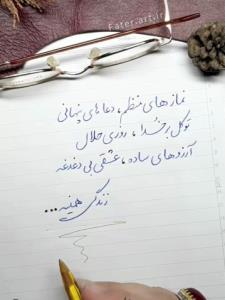 Fater-art.ir
نمازهای منظم، دعاهای پنهانی
توکل بر خدا، روزی حلال
آرزوهای ساده، عشقی بی دغدغه
زندگی همینه...